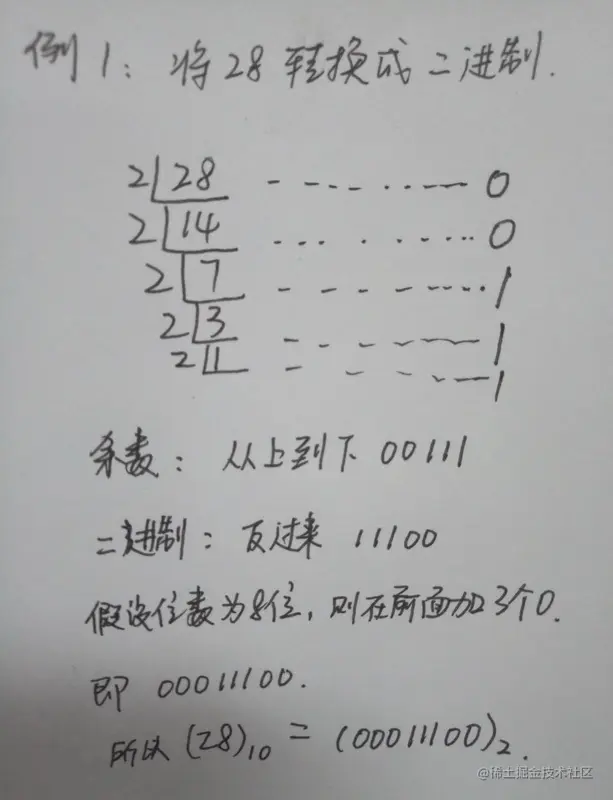 例1: 将28转换成二进制.
2|28 ---------- 0
2|14 ---------- 0
2|7 ---------- 1
2|3 ---------- 1
2|1 ---------- 1
余数: 从上到下 00111
二进制: 反过来 11100
假设位数为8位, 则在前面加3个0.
即 00011100.
所以 (28)10 = (00011100)2.
@稀土掘金技术社区